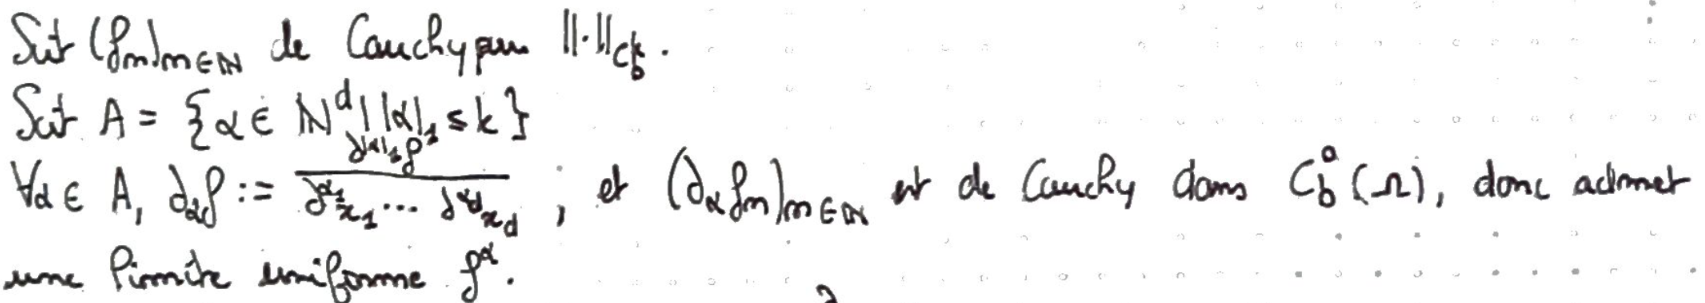 Soit (fₙ)ₙ∈ℕ de Cauchy pour ||·||_{C_b^k}.
Soit A = {α ∈ ℕ^d | |α|₁ ≤ k}
∀α ∈ A, ∂_α f := ∂^{|α|₁} f / ∂^{α₁}_{x₁} ... ∂^{α_d}_{x_d} ; et (∂_α fₙ)ₙ∈ℕ est de Cauchy dans C_b^0(Ω), donc admet
une limite uniforme f^α.